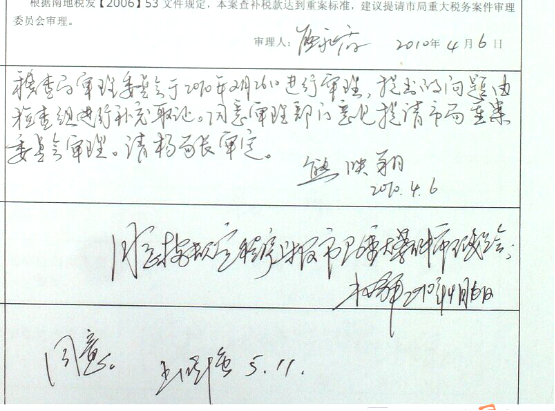 根据南地税发【2006】53 文件规定，本案查补税款达到重案标准，建议提请市局重大税务案件审理
委员会审理。
审理人： 2010年4月6日
稽查局审理委员会于2010年2月26日进行审理，提出的问题由
检查组进行补充取证。同意审理部门意见提请市局重案
委员会审理。请杨局长审定。
熊映翔
2010.4.6
同意按规定程序上报市局重大案件审理委员会。
2010年4月6日
同意。 5.11.